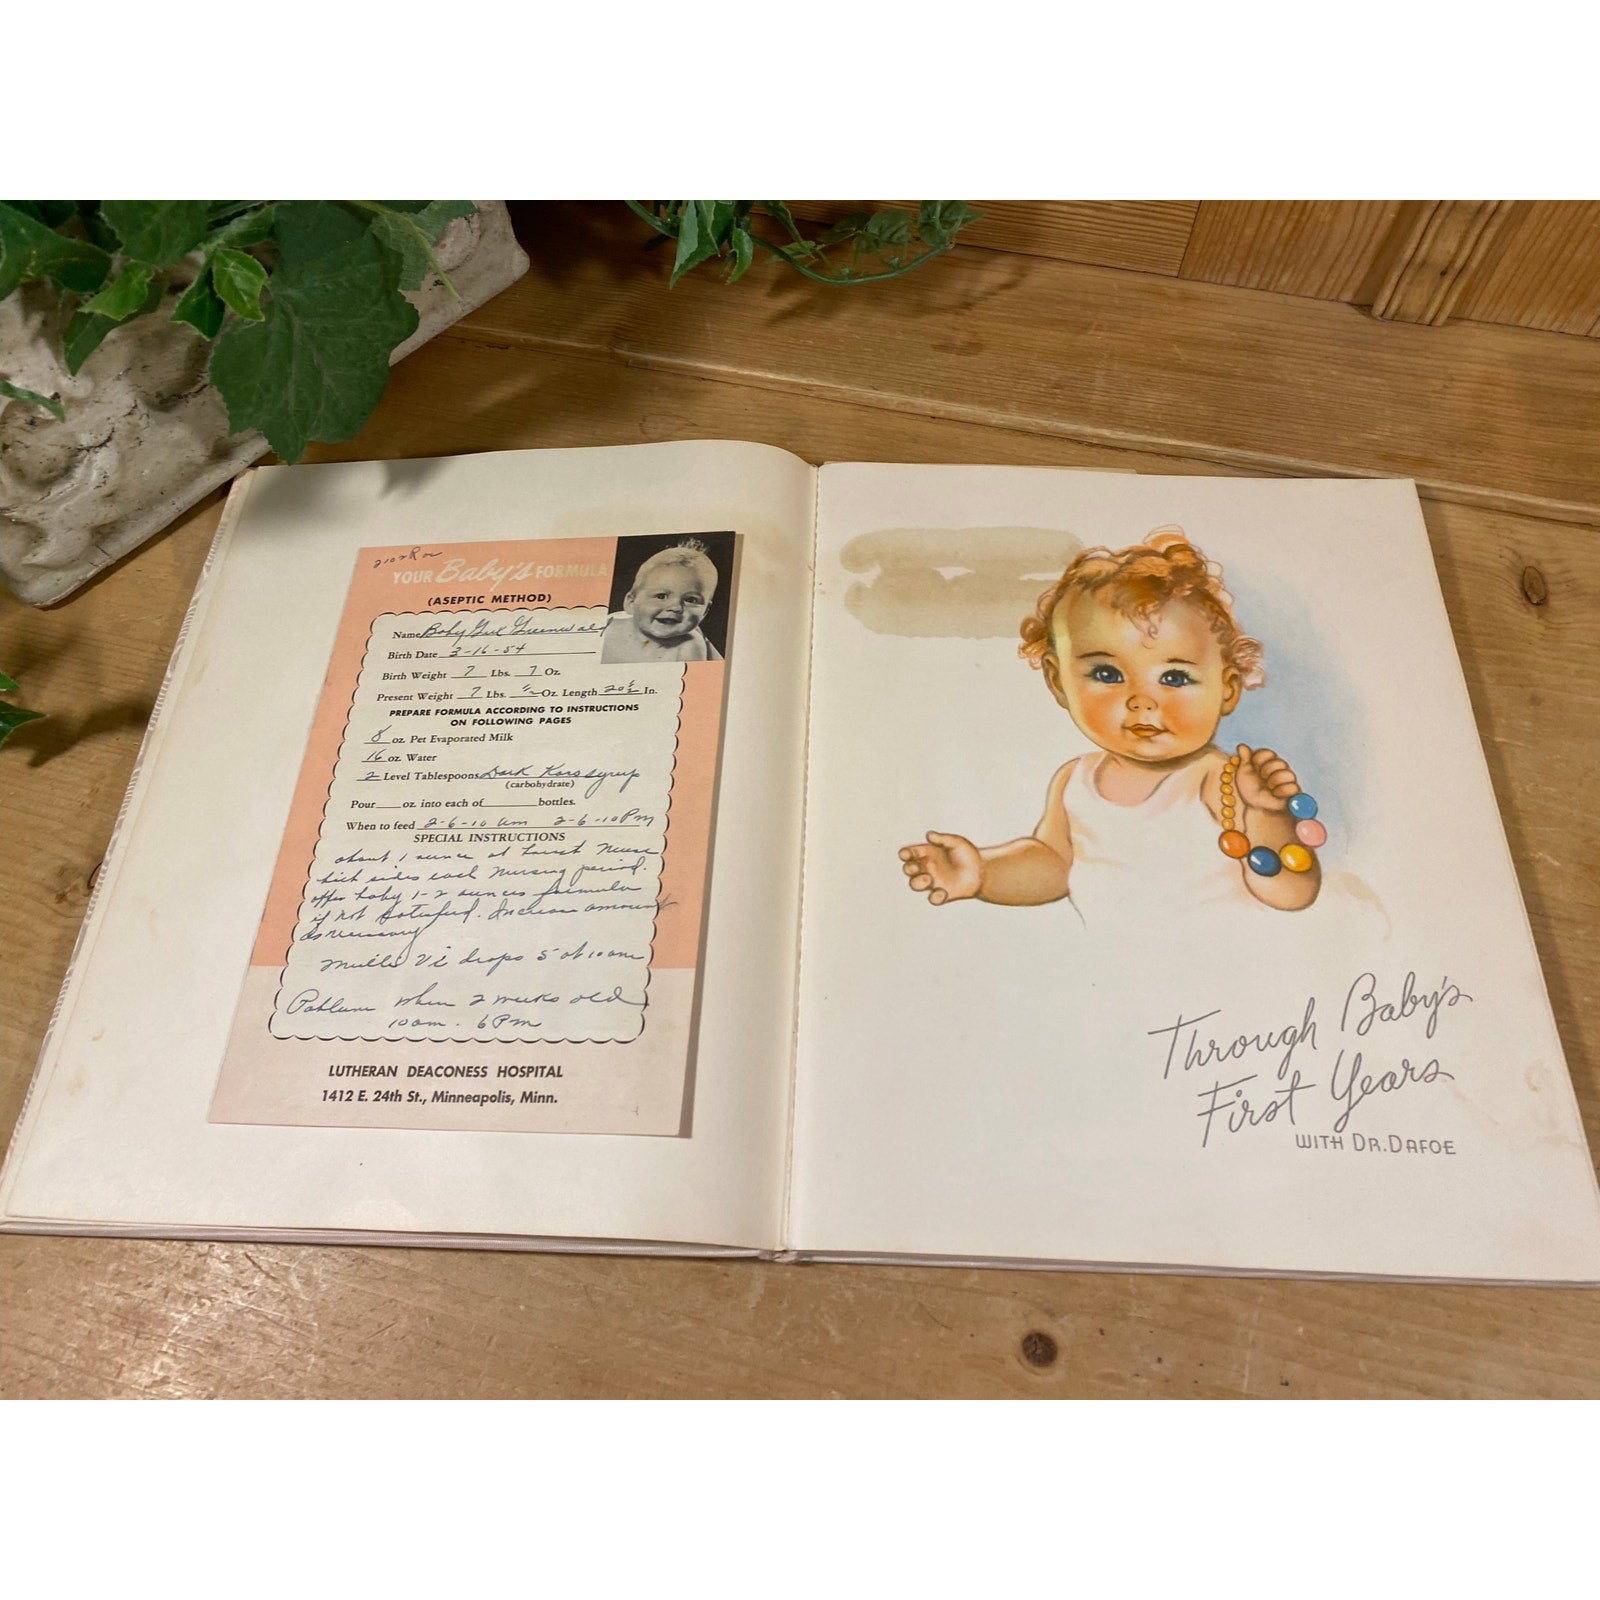 YOUR Baby's FORMULA
(ASEPTIC METHOD)
Name Baby Girl Greenwald
Birth Date 3-16-54
Birth Weight 7 Lbs. 7 Oz.
Present Weight 7 Lbs. ½ Oz. Length 20½ In.
PREPARE FORMULA ACCORDING TO INSTRUCTIONS
ON FOLLOWING PAGES
8 oz. Pet Evaporated Milk
16 oz. Water
2 Level Tablespoons Dark Karo syrup
(carbohydrate)
Pour oz. into each of bottles.
When to feed 2-6-10 am 2-6-10 Pm
SPECIAL INSTRUCTIONS
about 1 ounce at Nurse
both sides each nursing period.
offer baby 1-2 ounces formula
if not satisfied. Increase amount
as necessary
Multi Vi drops 5 at 10 am
Pablum when 2 weeks old
10 am. 6 Pm
LUTHERAN DEACONESS HOSPITAL
1412 E. 24th St., Minneapolis, Minn.
Through Baby's
First Years
WITH DR. DAFOE